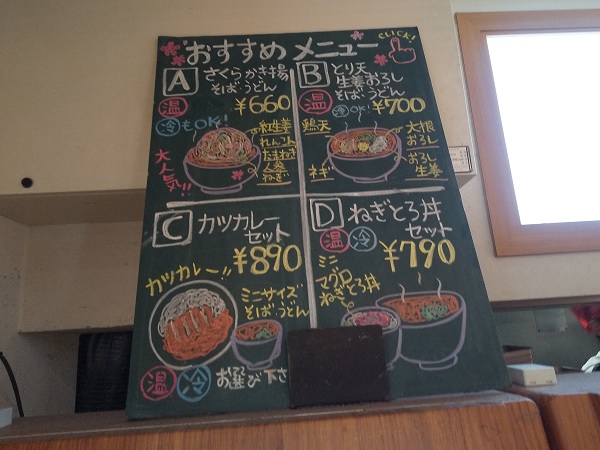 おすすめメニュー
CLICK!
A さくらかき揚
そば・うどん
¥660
温
冷もOK!
大人気!!
紅生姜
れんこん
たまねぎ
人参
ねぎ
B とり天
生姜おろし
そば・うどん
温
冷OK!
¥700
鶏天
ネギ
大根
おろし
おろし
生姜
C カツカレー
セット
¥890
カツカレー!!
ミニサイズ
そば・うどん
温 冷 お選び下さ
D ねぎとろ丼
セット
温 冷
¥790
ミニ
マグロ
ねぎとろ丼